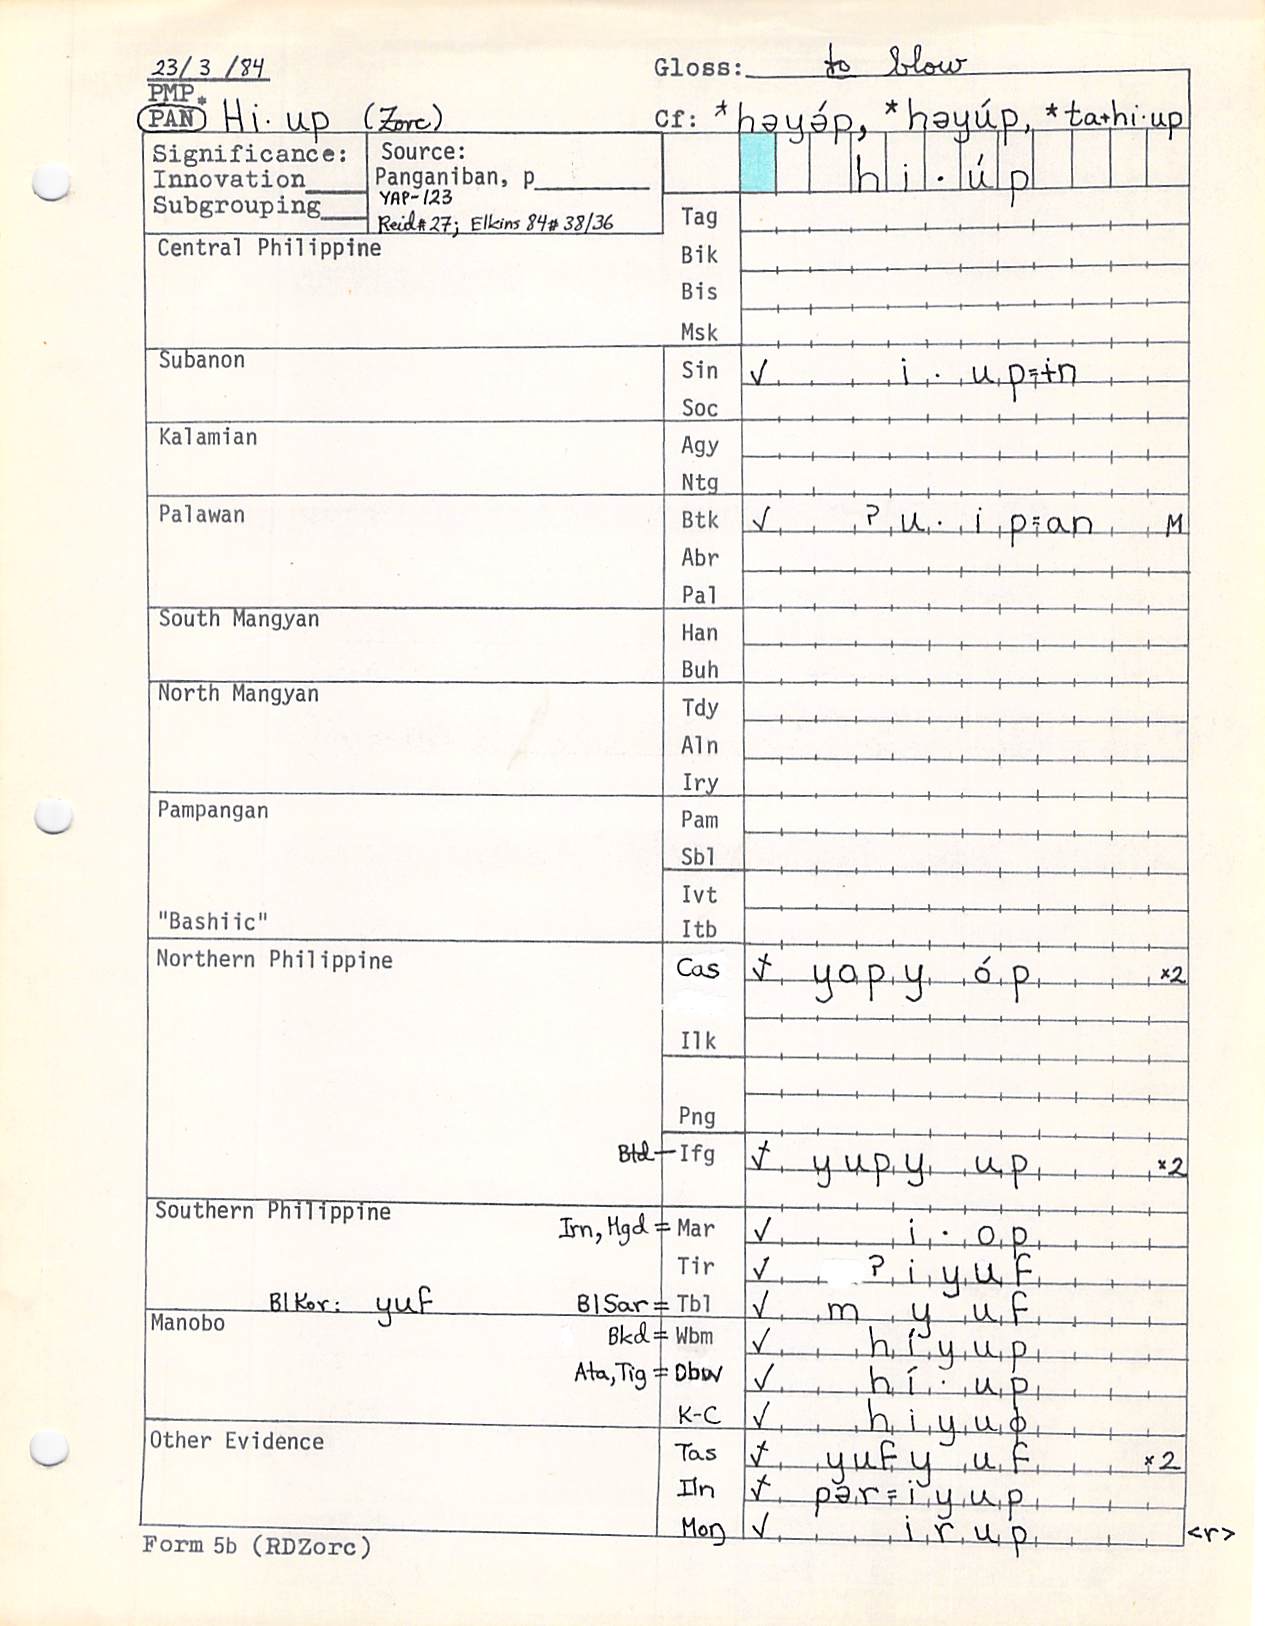 23/3/84
Gloss: to blow
PMP*
PAN Hi·up (Zorc)
Cf: *həyə́p, *həyúp, *ta+hi·up
Significance:
Innovation
Subgrouping
Source:
Panganiban, p
YAP-123
Reid#27; Elkins 84#38/36
hi·úp
Tag
Central Philippine
Bik
Bis
Msk
Subanon
Sin √ i·up=ɨn
Soc
Kalamian
Agy
Ntg
Palawan
Btk √ ʔu·ip=an M
Abr
Pal
South Mangyan
Han
Buh
North Mangyan
Tdy
Aln
Iry
Pampangan
Pam
Sbl
Ivt
"Bashiic"
Itb
Northern Philippine
Cas √ yapyóp ×2
Ilk
Png
Btd Ifg √ yupyup ×2
Southern Philippine
Irn, Mgd = Mar √ i·op
Tir √ ʔiyuf
BlKor: yuf BlSar = Tbl √ myuf
Manobo
Bkd = Wbm √ híyup
Ata, Tig = Dbw √ hí·up
K-C √ hiyuɸ
Other Evidence
Tas √ yufyuf ×2
Iln √ pər=iyup
√ irup <r>
Form 5b (RDZorc)